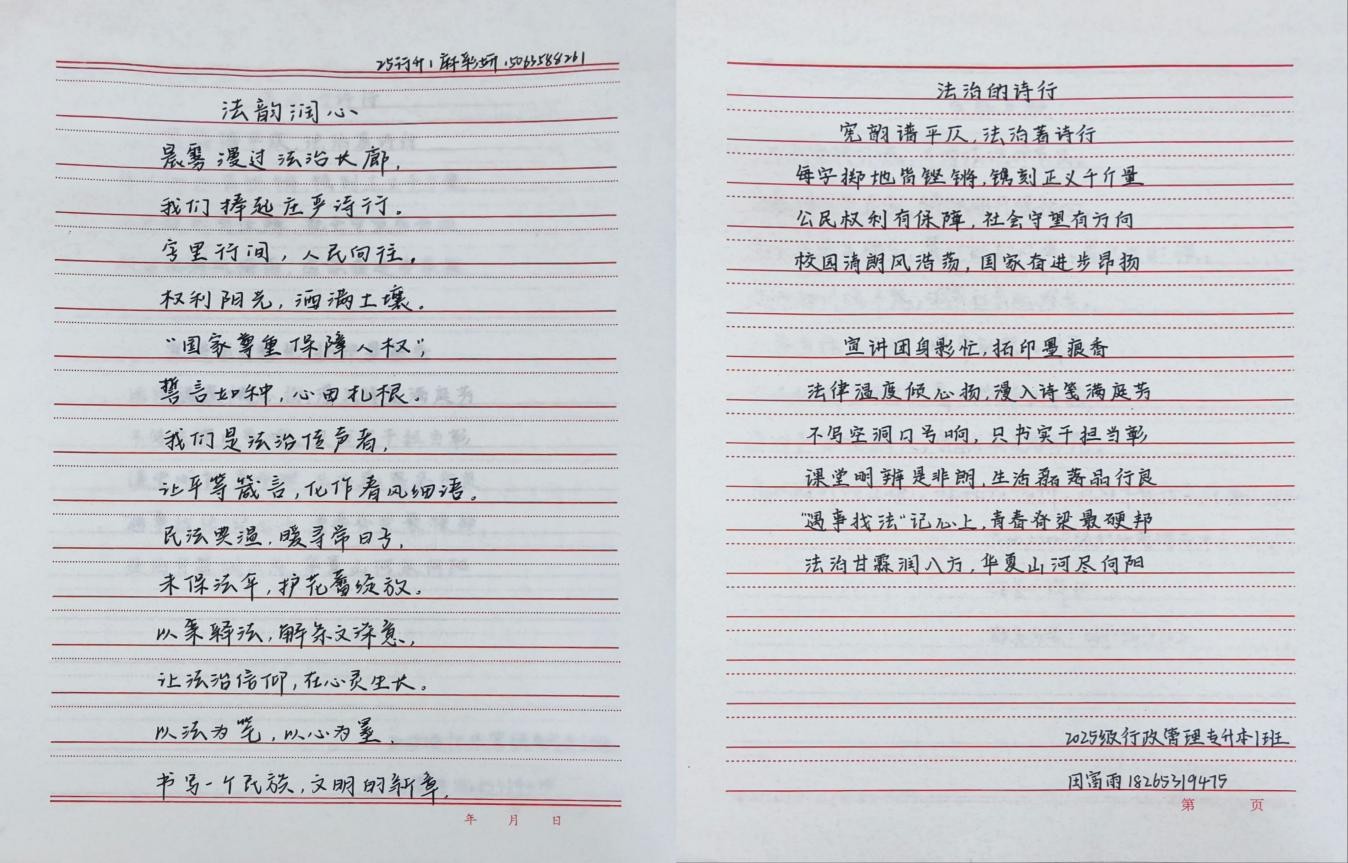 25行升1 麻彩妍 15063588261
法韵润心
晨雾漫过法治长廊，
我们捧起庄严诗行。
字里行间，人民向往，
权利阳光，洒满土壤。
“国家尊重保障人权”，
誓言如种，心田扎根。
我们是法治传声者，
让平等箴言，化作春风细语。
民法典温，暖寻常日子，
未保法牢，护花蕾绽放。
以案释法，解条文深意，
让法治信仰，在心灵生长。
以法为笔，以心为墨，
书写一个民族，文明的新章。
年 月 日
法治的诗行
宪韵谱平仄，法治著诗行
每字掷地皆铿锵，镌刻正义千斤量
公民权利有保障，社会守望有方向
校园清朗风浩荡，国家奋进步昂扬
宣讲团身影忙，拓印墨痕香
法律温度倾心扬，漫入诗笺满庭芳
不写空洞口号响，只书实干担当彰
课堂明辨是非朗，生活磊落品行良
“遇事找法”记心上，青春脊梁最硬邦
法治甘霖润八方，华夏山河尽向阳
2025级行政管理专升本1班
闵富雨 18265319475
第 页